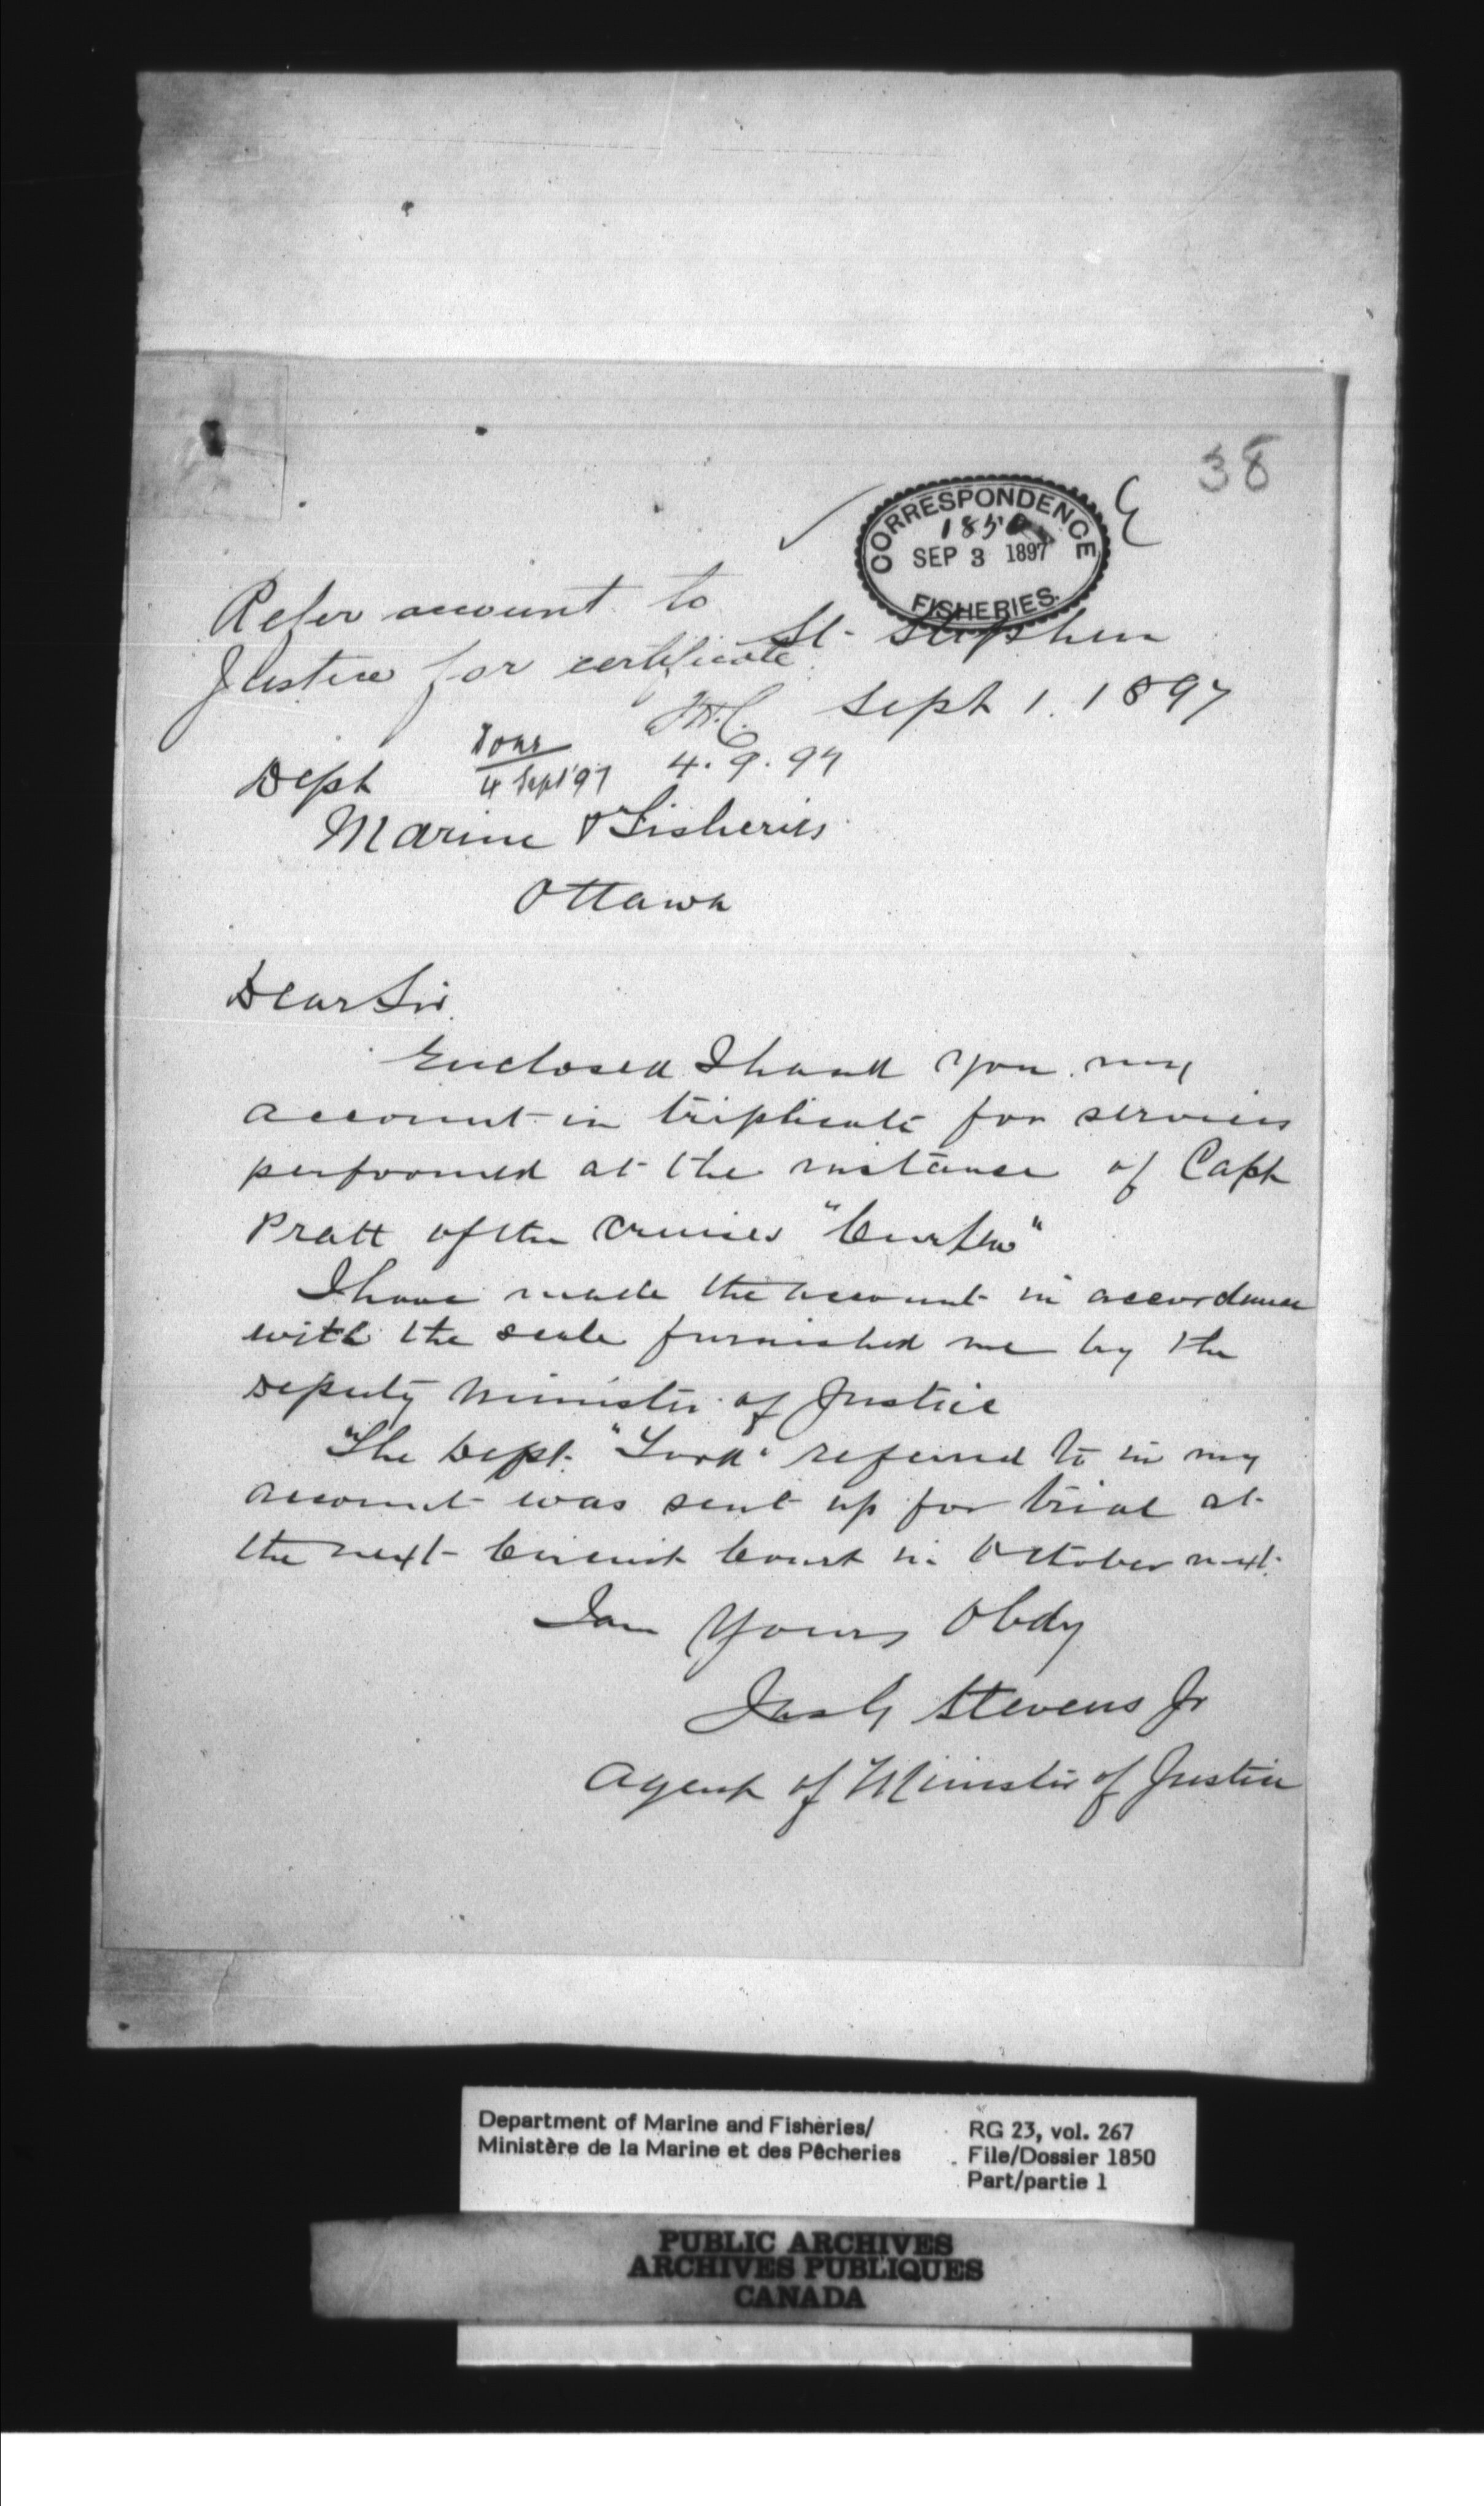 38
CORRESPONDENCE
1850
SEP 3 1897
FISHERIES.
Refer account to
Justice for certificate
4.9.97
Done
4 Sept '97
St. Stephen
Sept 1. 1897
Dept
Marine & Fisheries
Ottawa
Dear Sir
Enclosed I hand you my
account in triplicate for services
performed at the instance of Capt
Pratt of the cruiser "Curlew"
I have made the account in accordance
with the scale furnished me by the
Deputy Minister of Justice
The Deft. referred to in my
account was sent up for trial at
the next Circuit Court in October next.
I am Yours Obdy
Jas G Stevens Jr
Agent of Minister of Justice
Department of Marine and Fisheries/
Ministère de la Marine et des Pêcheries
RG 23, vol. 267
File/Dossier 1850
Part/partie 1
PUBLIC ARCHIVES
ARCHIVES PUBLIQUES
CANADA